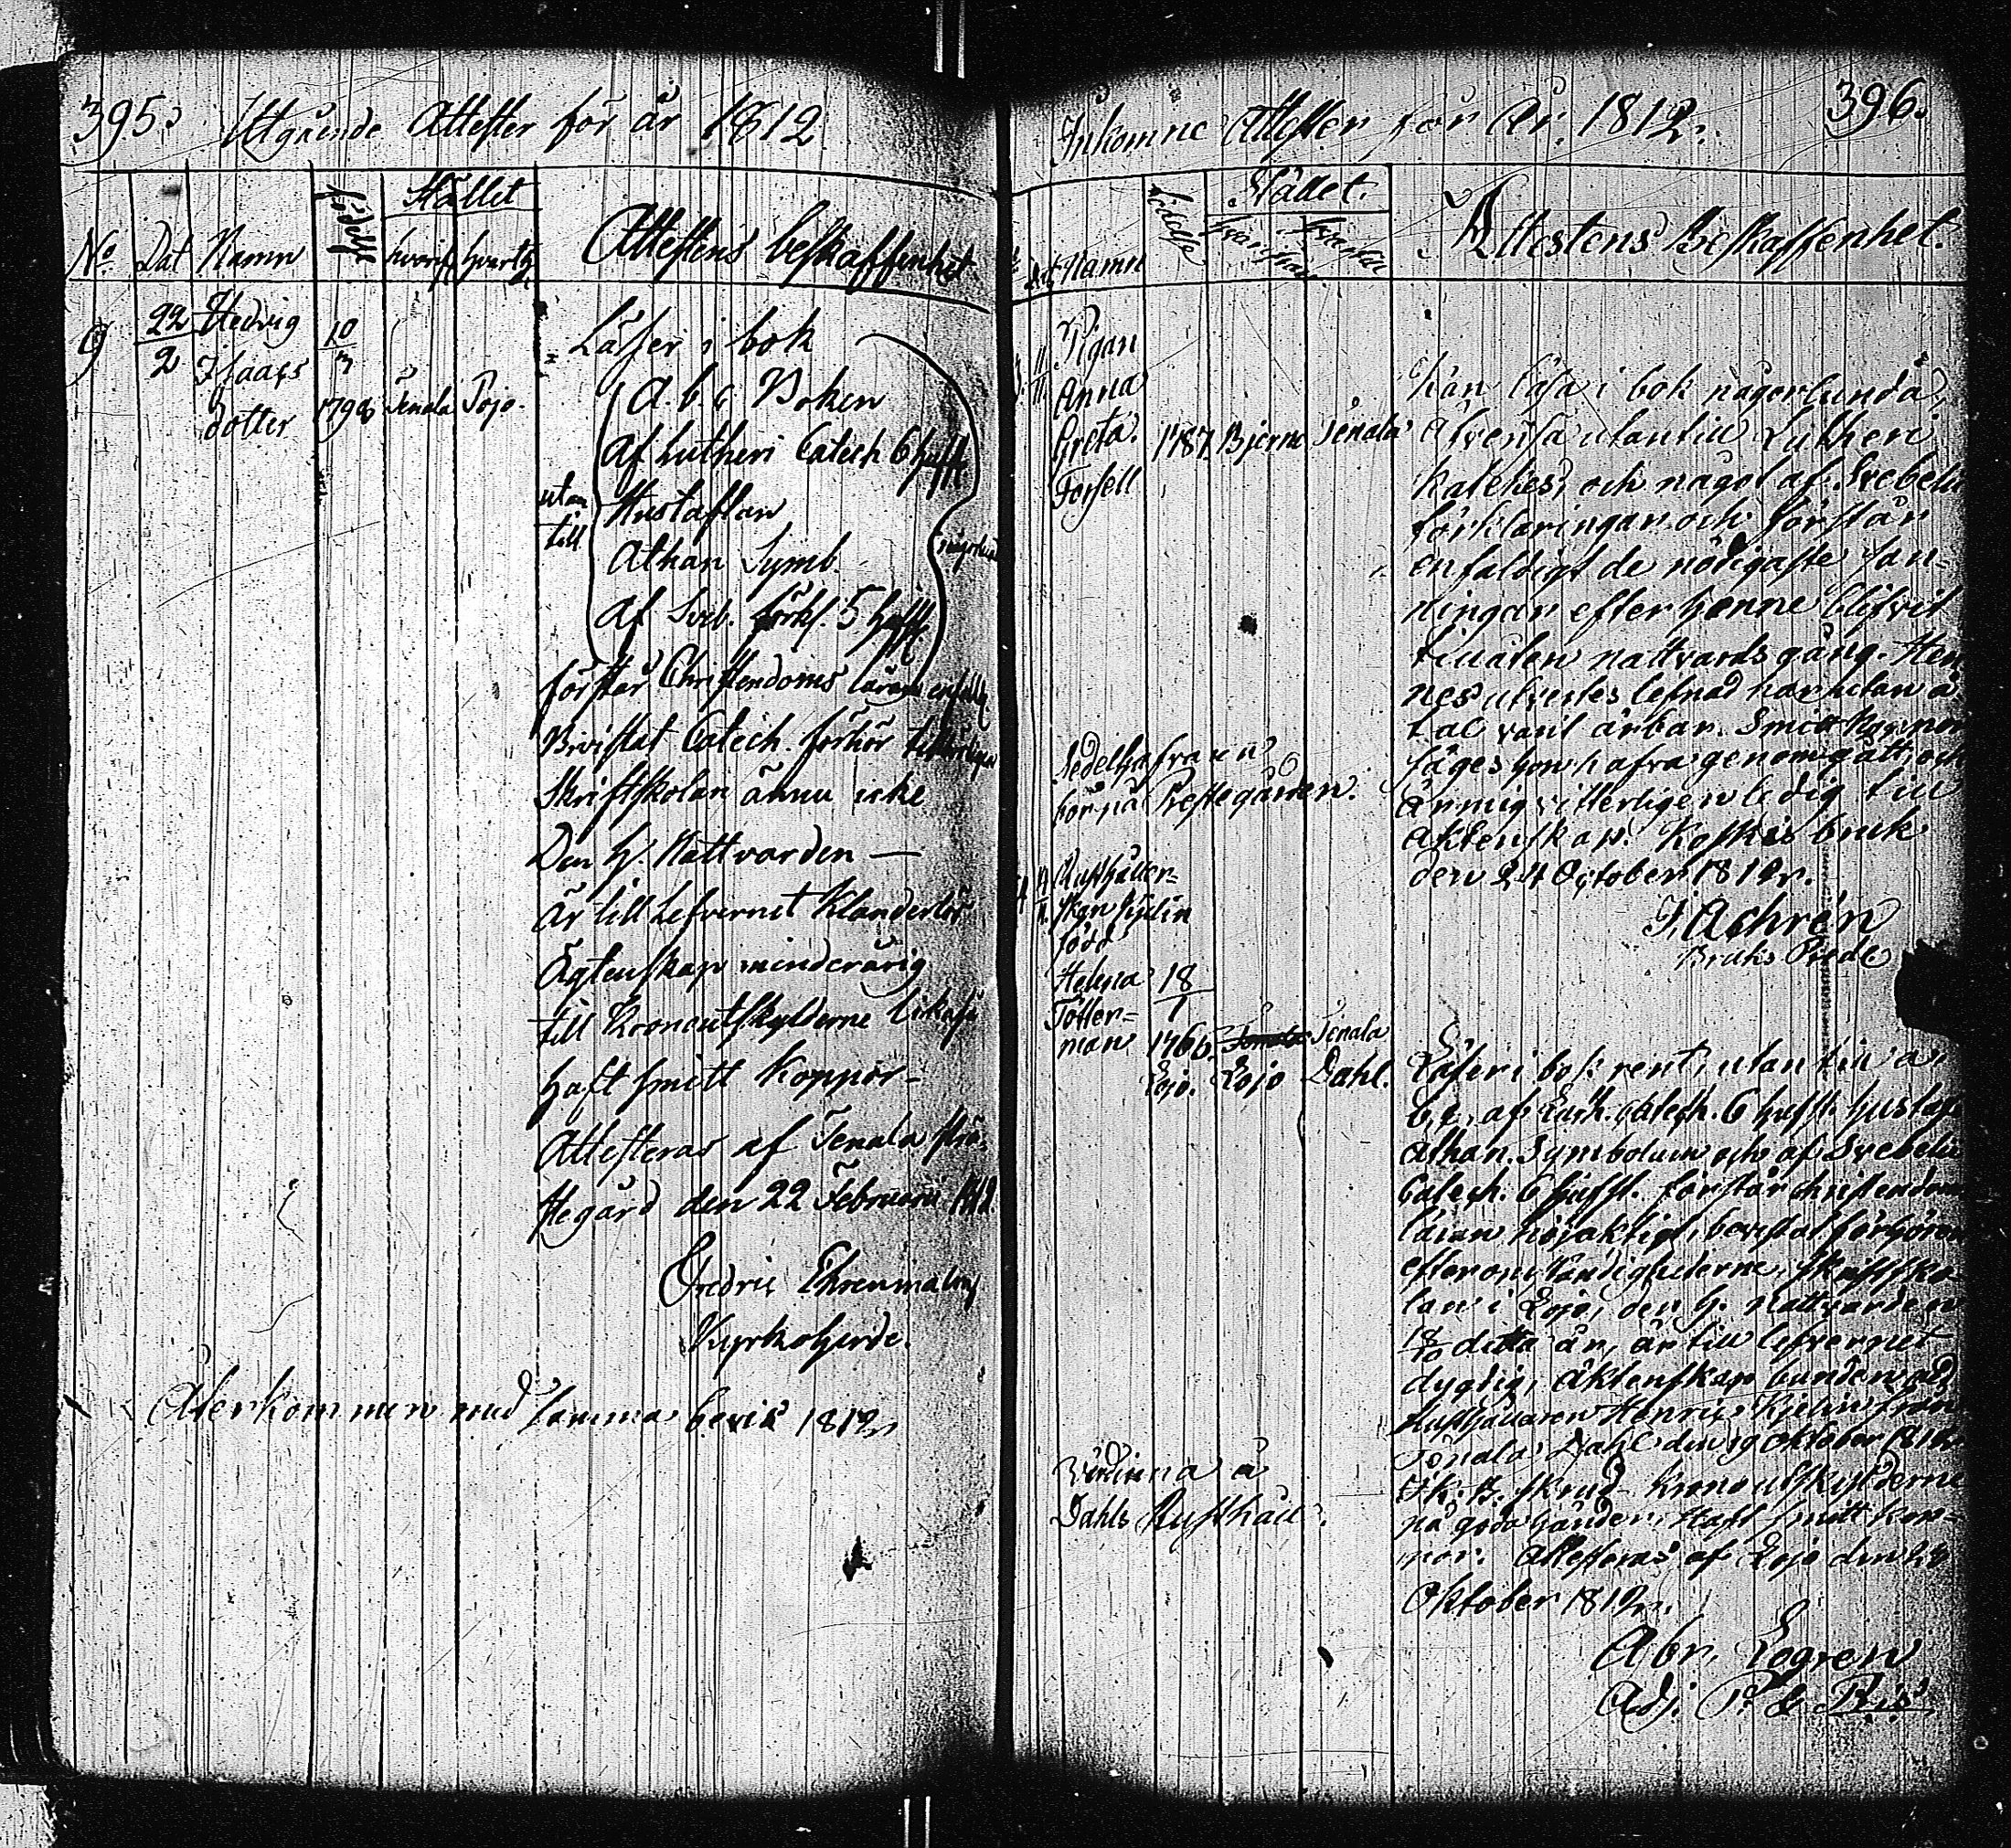 395. Utgående Attester för år 1812
Stället
No Dat Namn födelse hvarifr. hvartil Attestens beskaffenhet
9 22/2 Hedvig Isaacs dotter 10/3 1798 Tenala Pojo
Läser i bok
A. b. c. Boken
Af Lutheri Catech 6 hufst
utan till
Hustaflan
Athan Symb.
af Sveb. förkl. 5 hufst
någorlunda
förstår Christendoms läran enfaldig
Bivistat Catech. förhör
Skriftskolan ännu icke
Den H. Nattvarden —
Är till Lefvernet Klanderlös
Ägtenskap minderårig
till Kronoutskylderne likaså
Haft smitt Koppor
Attesteras af Tenala Prä-
stegård den 22 Februarii 1812
Fredric Ehrenmalm
Kyrkoherde.
Återkommen med samma bevis 1812
Inkomne Attester för År 1812. 396.
Stället.
Namn födelse Attestens Beskaffenhet.
Pigan
Anna
Greta
Forsell 1787. Bjerno Tenala
kan läsa i bok någorlunda,
äfvensa utantill Lutheri
katekes, och något af Svebelii
förklaringar och förstår
enfaldigt de nödigaste san-
ningar efter henne blifvit
tillåten nattvardsgång. Hen
nes utvertes lefnad har utan å
tal varit ärbar. Smittkoppor
säges hon hafva genomgått, och
är mig vitterligen ledig till
äktenskap. Koskis bruk
den 24 October 1812.
J. Achrén
Bruks Pred.
Sedelhafvaren
bor på Prestegården.
Rusthållar-
fkgn Kjelin
född
Helena
Tötter-
man 18/1 1766. Lojo. Lojo Tenala Dahl.
Läser i bok rent, utan till a.
b. c. af Luth. Catech. 6 hufst. hustaf.
Athan. Symbolum och af Svebelii
Catech. 6 hufst. förstår christendoms
läran nöjaktigt, bevistat förhören
efter omständigheterne, skriftsko
lan i Lojo, den H. Nattvarden
18/10 detta år, är till lefvernet
dygdig, äktenskap bunden vid
Rusthållaren Henric Kjelin från
Tenala Dahl den 19 Oktober 1812
kronoutskylderne
på goda händer. Haft smitt kop-
por. Attesteras af Lojo den
Oktober 1812.
Abr. Legren
Adj. P.
Värdinna å
Dahls Rusthåll.